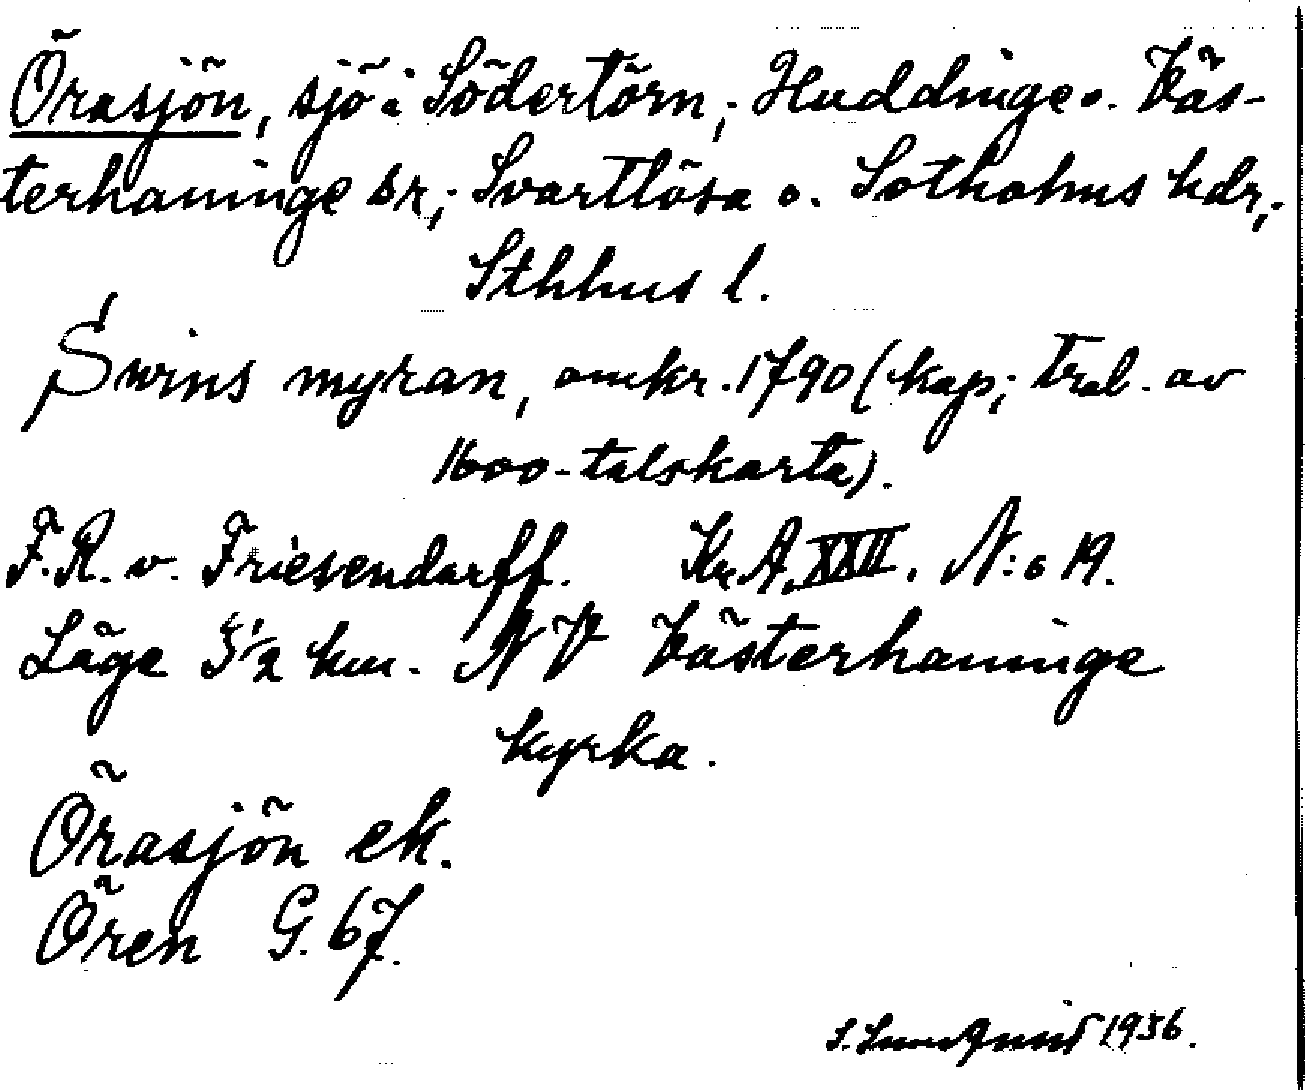 Örasjön, sjö i Södertörn, Huddinge o. Väs-
terhaninge sr, Svartlösa o. Sotholms hdr,
Sthlms l.
Swins myran, omkr. 1790 (kop, trol. av
1600-talskarta).
F.R. v. Friesendorff. Kr.A. XXII. N:o 19.
Läge 5 1/2 km. NV Västerhaninge
kyrka.
Örasjön ek.
Ören G. 67.
S. 1936.